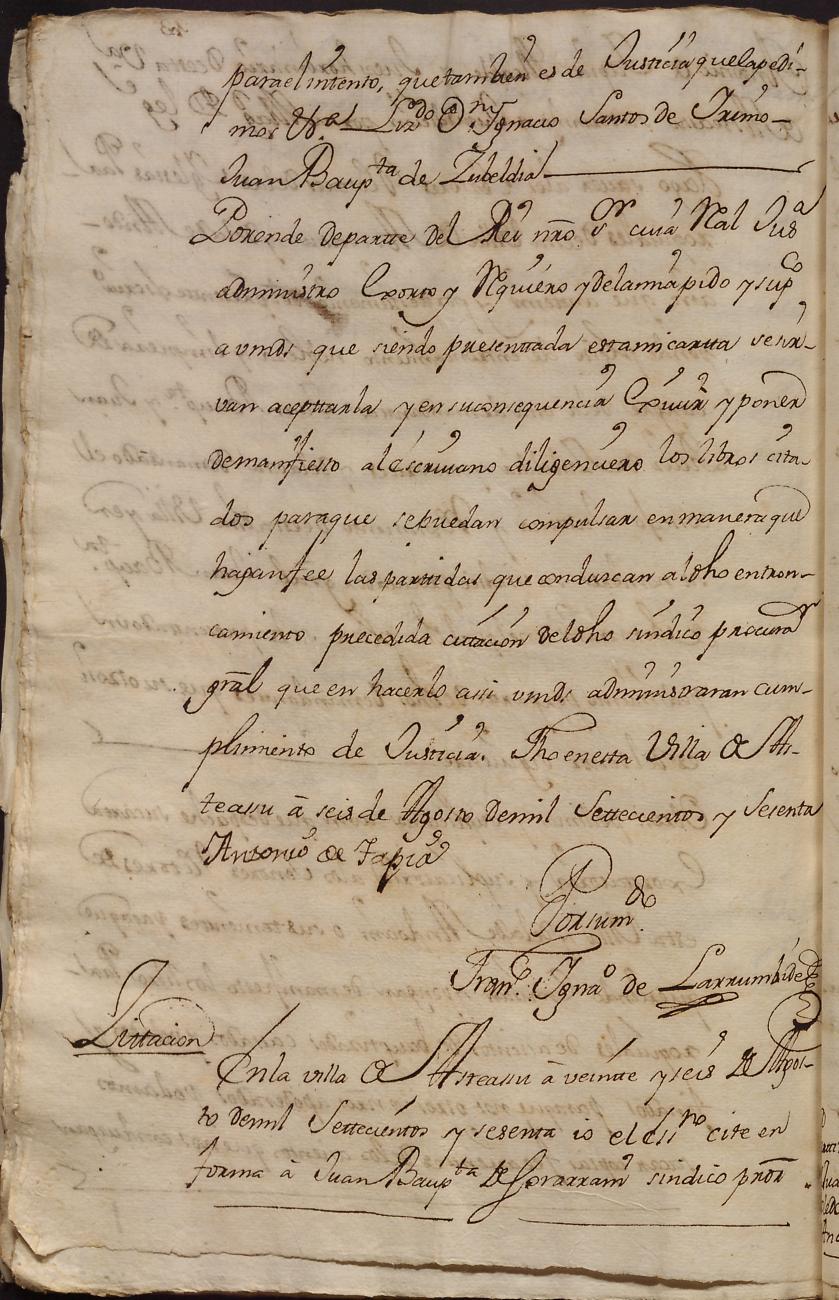 para el intento, que tambien es de Justicia que la pedi-
mos &ra Lizdo Dn Ygnacio Santos de Ireno-
Juan Baupta de Zubeldia
Porende de partte del Rei nro Sr cuia Ral Jusa
administro Exorto y Rquiero y de la mia pido y supco
a vmds que siendo presenttada esta mi cartta se sir-
van acepttarla y en su consequencia Exivir y poner
de manifiesto al escrivano diligenciero los libros cita-
dos para que se puedan compulsar en manera que
hagan fee las parttidas que conduscan al dho entron-
camiento precedida cittacion del dho sindico procurar
gral que en hacerlo assi vmds administraran cum-
plimiento de Justicia. Fho en esta Villa de As-
teassu â seis de Agosto de mil Settecientos y Sesenta
Antonio de Tapia
Por sum.do
Franco Ignao de Larrumbide
Zittacion
En la villa de Asteassu â veinte y seis de Agos-
to de mil Settecientos y sesenta io el essno cite en
forma â Juan Baupta de sindico pror